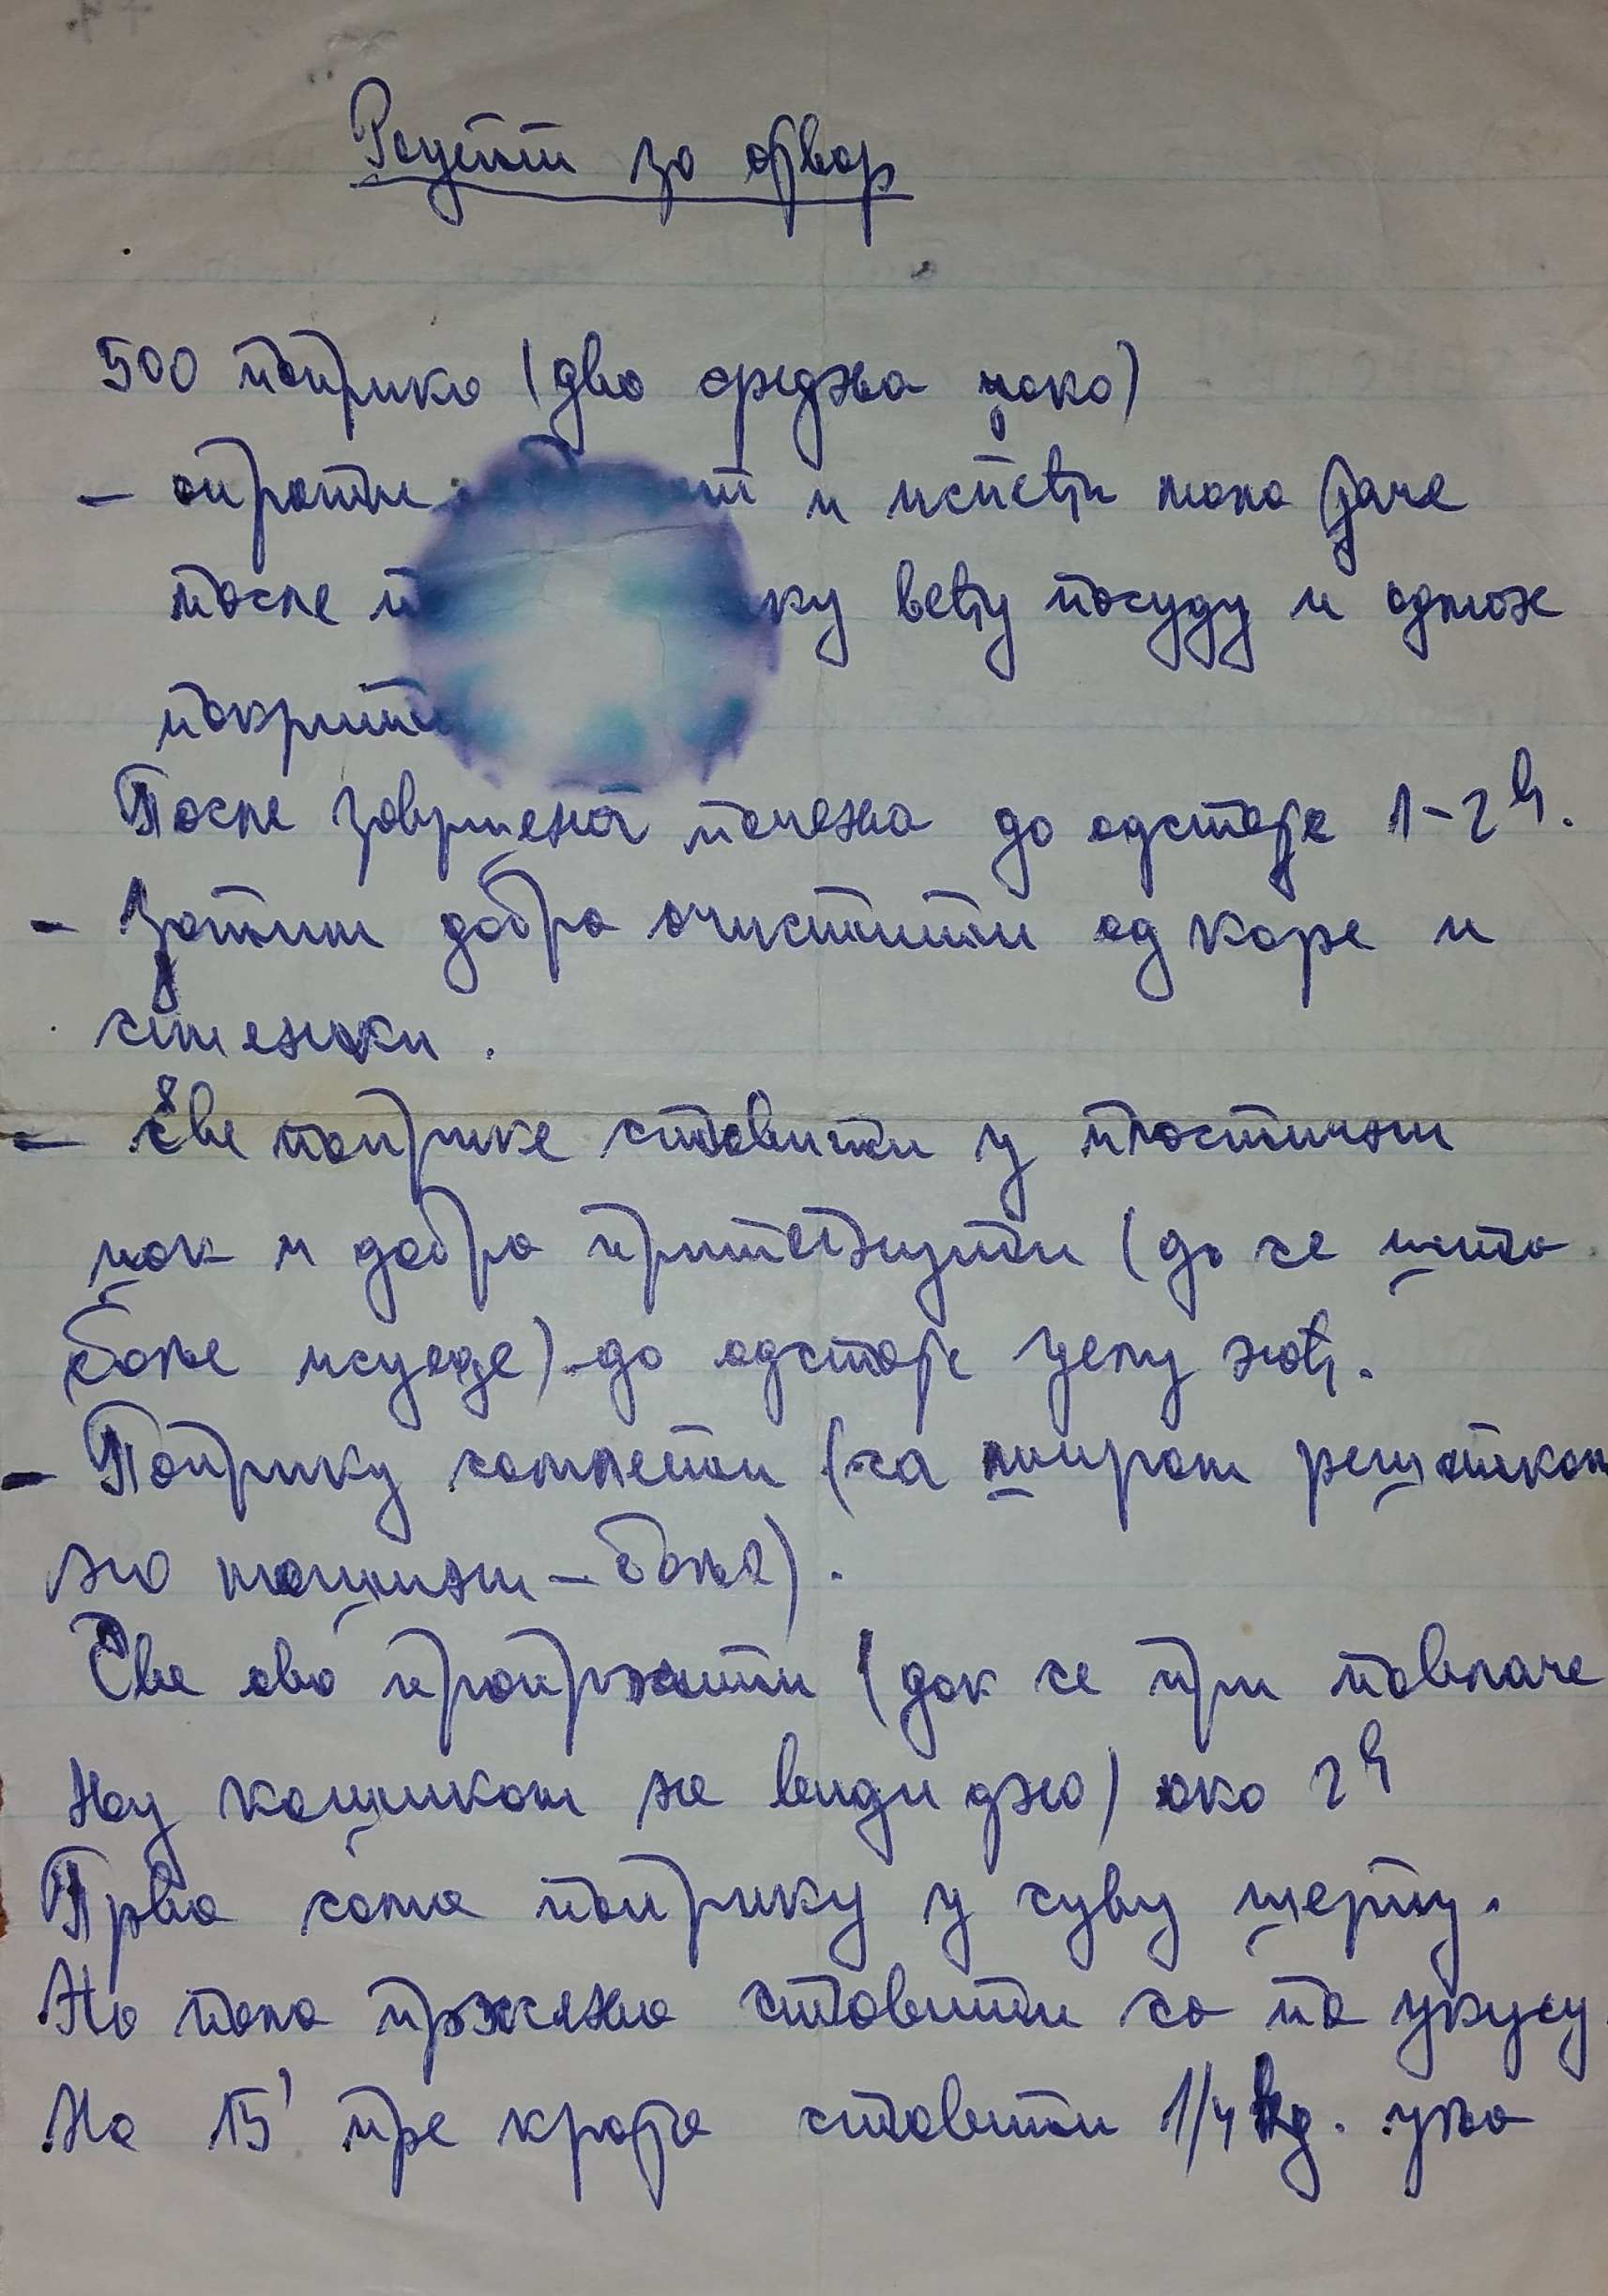 Рецепт за ајвар
500 паприка (два средња џака)
- опрати и испећи мало јаче
после већу посуду и одмах
После завршеног печења да одстоје 1-2h.
- Затим добро очистити од коре и
семенки.
- Све паприке ставити у платнени
џак и добро притегнути (да се што
боље исцеде) да одстоје целу ноћ.
- Паприку самлети (са широм решетком
на машини - боље).
Све ово пропржити (док се при повлаче
њу кашиком не види дно) око 2h
Прво сама паприку у суву шерпу.
На пола пржења ставити со по укусу.
На 15' пре краја ставити 1/4 kg. уља